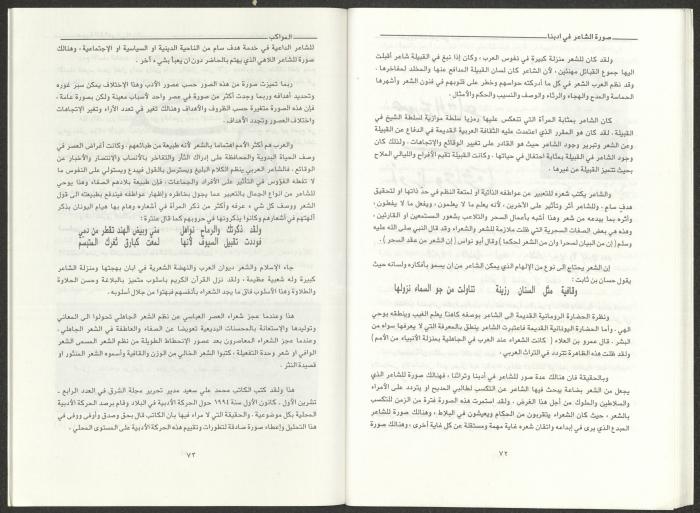 صورة الشاعر في ادبنا
ولقد كان للشعر منزلة كبيرة في نفوس العرب ، وكان إذا نبغ في القبيلة شاعر أقبلت
اليها جموع القبائل مهنئين ، لأن الشاعر كان لسان القبيلة المدافع عنها والمخلد لمفاخرها .
وقد نظم العرب الشعر في كل ما أدركته حواسهم وخطر على قلوبهم في فنون الشعر وأشهرها
الحماسة والمدح والهجاء والرثاء والوصف والنسيب والحكم والأمثال .
كان الشاعر بمثابة المرآة التي تنعكس عليها رمزيا سلطة موازية لسلطة الشيخ في
القبيلة . لقد كان هو المقرر الذي اعتمدت عليه الثقافة العربية القديمة في الدفاع عن القبيلة
وعن الشعر وتبرير وجود الشاعر حيث هو القادر على تغيير الوقائع والإتجاهات . ولذلك كان
وجود الشاعر في القبيلة بمثابة احتفال في حياتها . وكانت القبيلة تقيم الأفراح والليالي الملاح
بحيث تتميز القبيلة عن غيرها .
والشاعر يكتب شعره للتعبير عن عواطفه الذاتية أو لمتعة النظم في حدّ ذاتها او لتحقيق
هدف سام . وللشاعر أثر وتأثير على الآخرين ، لأنه يعلم ما لا يعلمون ، ويفعل ما لا يفعلون ،
وأثره بما يبدعه من شعر وهنا أشبه بأعمال السحر والتلاعب بشعور المستمعين أو القارئين ،
وهذه هي بعض الصفات السحرية التي ظلت ملازمة للشعر والشعراء وقد قال النبي صلى الله عليه
وسلم (إن من البيان لسحرا وان من الشعر لحكما) وقال أبو نواس (إن الشعر من عقد السحر) .
إن الشعر يحتاج الى نوع من الإلهام الذي يمكن الشاعر من ان يسمو بأفكاره ولسانه حيث
يقول حسان بن ثابت :
وقافية مثل السنان رزينة تناولت من جو السماء نزولها
ونظرة الحضارة الرومانية القديمة الى الشاعر بوصفه كاهنا يعلم الغيب وينطقه بوحي
الهي . وأما الحضارة اليونانية القديمة فاعتبرت الشاعر ينطق بالمعرفة التي لا يعرفها سواه من
البشر . قال عمرو بن العلاء ( كانت الشعراء عند العرب في الجاهلية بمنزلة الأنبياء من الأمم)
ولقد ظلت هذه الظاهرة تتردد في التراث العربي .
وبالحقيقة فان هنالك عدة صور للشاعر في أدبنا وتراثنا ، فهنالك صورة للشاعر الذي
يجعل من الشعر بضاعة يبحث فيها الشاعر عن التكسب لطالبي المديح او يتردد على الأمراء
والسلاطين والملوك من أجل هذا الغرض . ولقد استمرت هذه الصورة فترة من الزمن للتكسب
بالشعر ، حيث كان الشعراء يتقربون من الحكام ويعيشون في البلاط ، وهنالك صورة للشاعر
المبدع الذي يرى في إبداعه واتقان شعره غاية مهمة ومستقلة عن كل غاية أخرى ، وهنالك صورة
٧٢
المواكب
للشاعر الداعية في خدمة هدف سام من الناحية الدينية او السياسية او الإجتماعية ، وهنالك
صورة للشاعر اللاهي الذي يهتم بالحاضر دون ان يعبأ بشيء آخر .
ربما تميزت صورة من هذه الصور حسب عصور الأدب وهذا الإختلاف يمكن سبر غوره
وتحديد أهدافه وربما وجدت أكثر من صورة في عصر واحد لأسباب معينة ولكن بصورة عامة ،
فإن هذه الصورة متغيرة حسب الظروف والأهداف وهنالك تغير في تعدد الآراء وتغير الإتجاهات
واختلاف العصور وتجدد الأهداف .
والعرب هم أكثر الأمم اهتماما بالشعر لأنه طبيعة من طبائعهم ، وكانت أغراض العصر في
وصف الحياة البدوية والمحافظة على إدراك الثأر والتفاخر بالأنساب والإنتصار والأخبار عن
الوقائع . فالشاعر العربي ينظم الكلام البليغ ويسترسل بالقول فيبدع ويستولي على النفوس ما
لا تفعله الفؤوس في التأثير على الأفراد والجماعات ، فإن طبيعة بلادهم الصفاء وهذا يوحي
للشاعر من أنواع الجمال بالتعبير عما يجول بخاطره وإظهار عواطفه فيندفع بطبيعته الى قول
الشعر ووصف كل شيء عرفه وأكثر من ذكر المرأة في أشعاره وهام بها هيام اليونان بذكر
آلهتهم في أشعارهم وكانوا يذكرونها في حروبهم كما قال عنترة :
ولقد ذكرتك والرماح نواهل مني وبيض الهند تقطر من دمي
فوددت تقبيل السيوف لأنها لمعت كبارق ثغرك المتبسم
جاء الإسلام والشعر ديوان العرب والنهضة الشعرية في ابان بهجتها ومنزلة الشاعر
كبيرة وله شعبية عظيمة ، ولقد نزل القرآن الكريم باسلوب متميز بالبلاغة وحسن الحلاوة
والطلاوة وهذا الأسلوب فاق ما يجد الشعراء بأنفسهم فبهتوا من جلال أسلوبه .
هذا وعندما عجز شعراء العصر العباسي عن نظم الشعر الجاهلي تحولوا الى المعاني
وتوليدها والإستعانة بالمحسنات البديعية تعويضا عن الصفاء والعاطفة في الشعر الجاهلي .
وعندما عجز الشعراء المعاصرون بعد عصور الإنحطاط الطويلة من نظم الشعر المسمى الشعر
الوافي او شعر وحدة التفعيلة ، كتبوا الشعر الخالي من الوزن والقافية وأسموه الشعر المنثور او
قصيدة النثر .
هذا ولقد كتب الكاتب محمد علي سعيد مدير تحرير مجلة الشرق في العدد الرابع -
تشرين الأول . كانون الأول سنة ١٩٩٤ حول الحركة الأدبية في البلاد وقام برصد الحركة الأدبية
المحلية بكل موضوعية ، والحقيقة التي لا مراء فيها بان الكاتب قال بحق وصدق وأوفى ووفى في
هذا التحليل وإعطاء صورة صادقة لتطورات وتقييم هذه الحركة الأدبية على المستوى المحلي .
٧٣